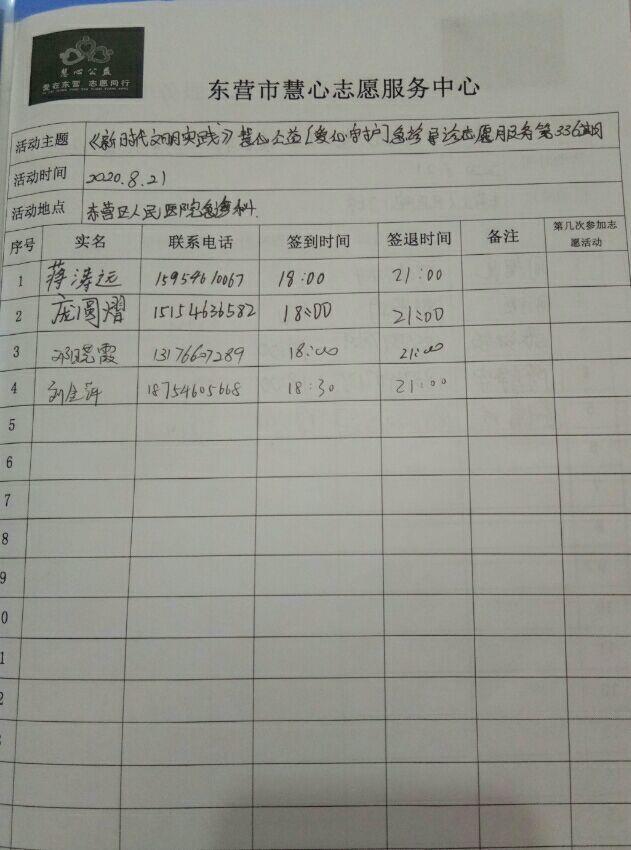 慧心公益
爱在东营 志愿同行
东营市慧心志愿服务中心
活动主题 《新时代文明实践》慧心公益[爱心守护]急诊导诊志愿服务第336期
活动时间 2020.8.21
活动地点 东营区人民医院急诊科
序号 实名 联系电话 签到时间 签退时间 备注 第几次参加志愿活动
1 蒋涛远 15954610067 18:00 21:00
2 庞圆熠 15154636582 18:00 21:00
3 邓晓霞 13176607289 18:00 21:00
4 刘金萍 18754605668 18:30 21:00
5
6
7
8
9
0
1
2